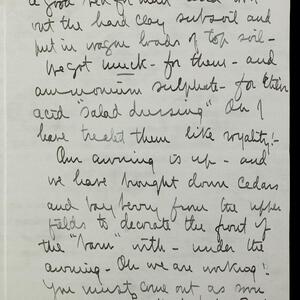 a good bed for them
out the hard clay subsoil and
put in wagon loads of top soil -
We got muck - for them - and
ammonium sulphate - for their
acid "salad dressing" Oh I
have treated them like royalty!-
Our awning is up - and
we have brought down cedars
and bay berry from the upper
fields to decorate the front of
the "barn" with - under the
awning. Oh we are working!
You must come out as soon